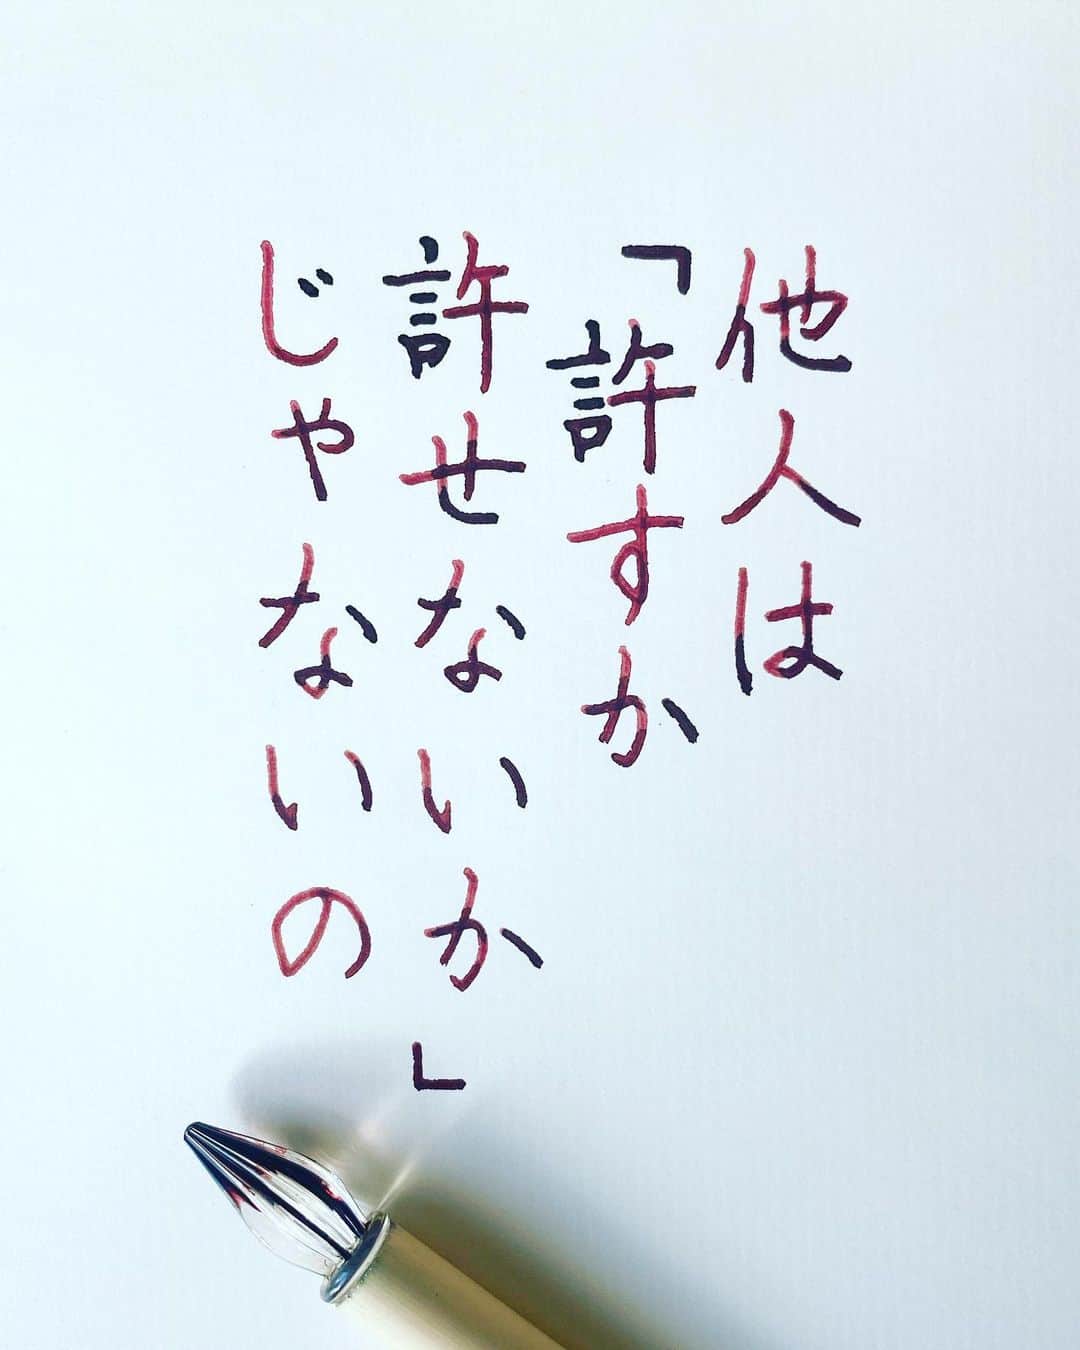 他人は
「許すか
許せないか」
じゃないの